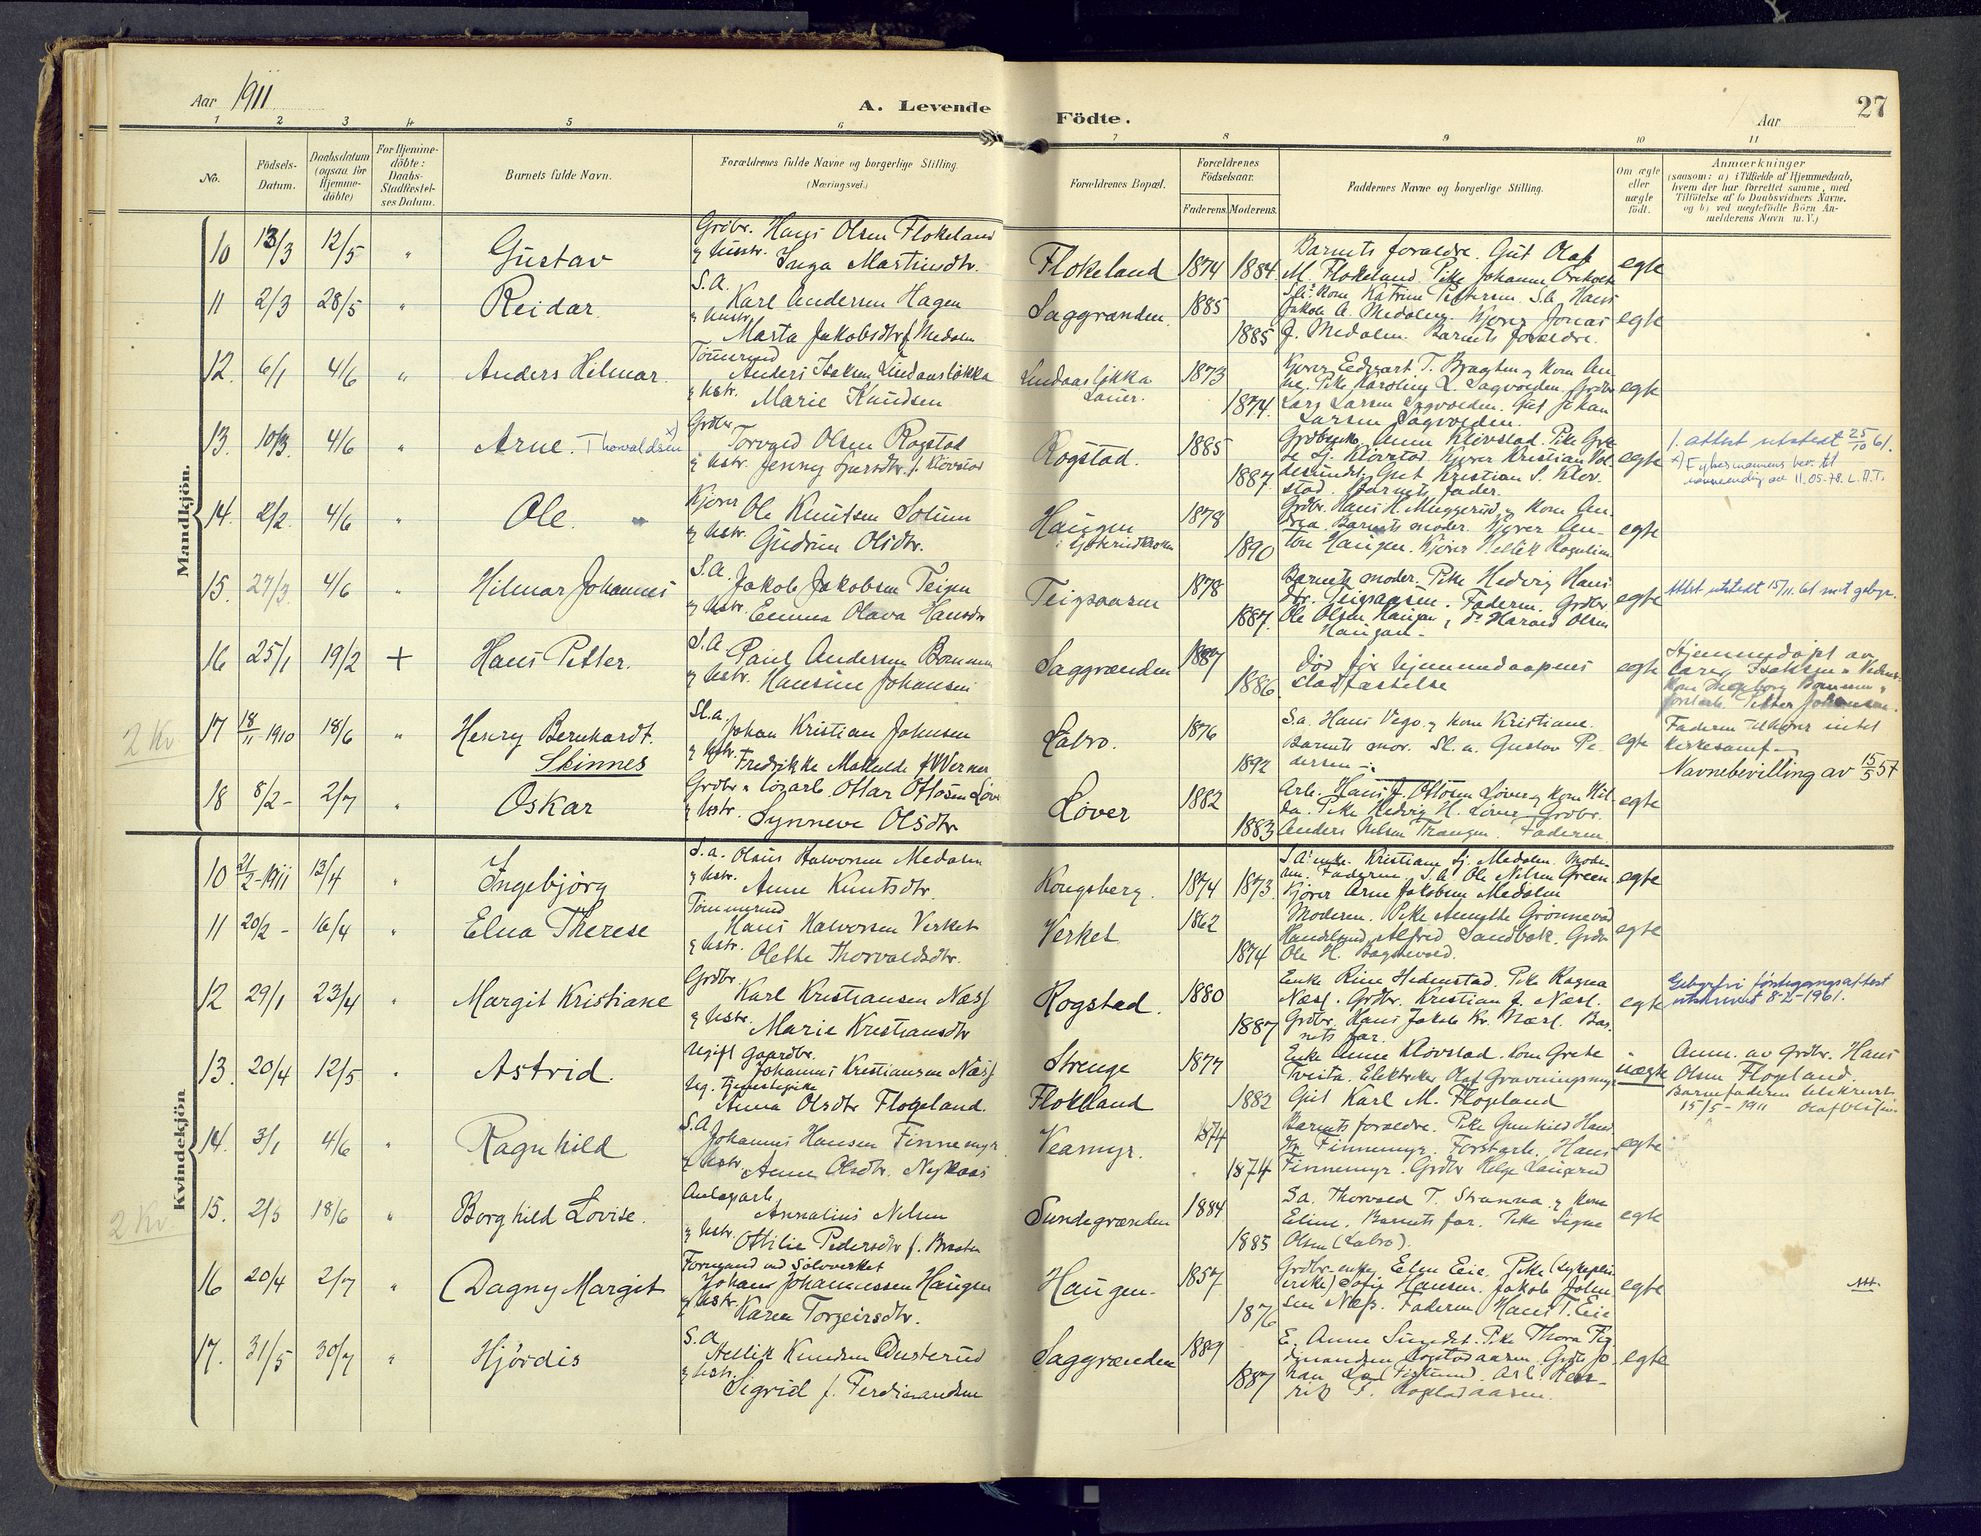 Aar 1911
A. Levende
Födte.
Aar
27
1 2 3 4 5 6 7 8 9 10 11
No.
Födsels-Datum.
Daabsdatum (ogsaa for Hjemme-döbte)
For Hjemme-döbte: Daabs-Stadfæstel-ses Datum.
Barnets fulde Navn.
Forældrenes fulde Navne og borgerlige Stilling. (Næringsvei.)
Forældrenes Bopæl.
Forældrenes Födselsaar.
Faderens. Moderens.
Faddernes Navne og borgerlige Stilling.
Om ægte eller uægte födt.
Anmærkninger
(saasom: a) i Tilfælde af Hjemmedaab, hvem der har forrettet samme, med Tilföielse af to Daabsvidners Navne, og b) ved uægtefödte Börn An-melderens Navn m. V.)
Mandkjön.
10 13/3 12/5 " Gustav
Grdbr. Hans Olsen Flokeland
& hustr. Inga Martinsdtr.
Flokeland 1874 1884
Barnets forældre. Gut Olaf
M. Flokeland. Pike Johanne
egte
11 2/3 28/5 " Reidar.
S.A.
Karl Andersen Hagen
& hustr.
Marta Jakobsdtr f. Medalen
Saggrænden. 1885
1885
Kone Katrine Pettersen. S.a. Hans
Jakob A. Medalen. Kjører Jonas
J. Medalen. Barnets forældre.
egte
12. 6/1 4/6 " Anders Hilmar.
Tömmermd
Anders Isaksen Lindaasløkka
& hstr.
Marie Knudsen
Lindaasløkka
Laver.
1873
1874.
Kjører Edvart T. Bragten & kone An-
ne. Pike Karoline L. Sagvolden. Grdbr
Lars Larsen Sagvolden. Gut Johan
Larsen Sagvolden.
egte
13. 10/3. 4/6 " Arne. Thorvaldsen x)
Grdbr
Torvald Olsen Rogstad
& hstr. Jenny Larsdtr. f. Klövstad
Rogstad. 1885
1887.
Anne Klövstad. Pike Gre-
te Lj. Klövstad. Kjører Kristian Vol-
desund. Gut Kristian S. Klöv-
stad. Barnets fader.
egte
1. attest utstedt 25/10 61.
x) Fylkesmannens bev. til
navneendring av 11.05.78. L.A.T.
14. 2/2. 4/6 " Ole.
Kjører
Ole Knutsen Solum
& hstr.
Gudrun Olsdtr.
Haugen
1878
1890
Grdbr. Hans H. Muggerud & kone An-
drea. Barnets moder. Kjører An-
ton Haugen. Kjører Hellik
egte
15. 27/3. 4/6 " Hilmar Johannes
S.A.
Jakob Jakobsen Teigen
& hstr.
Emma Olava Hansdtr
Teigsaasen 1878
1887.
Barnets moder. Pike Hedvig Hans-
dtr. Teigsaasen. Faderen. Grdbr.
Ole Olsen Haugan, do Harald Olsen
Haugan.
egte
Attest utstedt 15/11.61 mot gebyr.
16 25/1 19/2 + Hans Petter.
S.A.
Paul Andersen Bommen
& hstr. Hansine Johansen
Saggrænden 1887
1886.
Död för hjemmedaapens
stadfæstelse
egte
Hjemmedöpt av
Lars Isaksen
Kone Ingeborg Bommen &
forstarb. Petter Johansen.
2 Kv.
17 18/11-1910 18/6 " Henry Bernhardt.
Skinnes
Sl.a.
Johan Kristian Johnsen
& hstr.
Fredrikke Mathilde f. Werner
Labro. 1876
1892
S.a. Hans Vego. & kone Kristiane.
Barnets mor. Sl.a. Gustav Pe-
dersen -.
egte
Faderen tilhører intet
kirkesamf-
Navnebevilling av 15/5 57
18 8/2 - 2/7 " Oskar
Grdbr & lösarb. Ottar Ottosen Löver
& hstr.
Synneve Olsdtr
Löver 1882
1883
Arb. Hans J. Ottosen Löver & kone Hil-
da. Pike Hedvig H. Löver. Grdbr.
Anders Nilsen Trangen. Faderen
egte
Kvindekjön
10 2/2-1911 13/4 " Ingebjörg
S.a. Olaus Halvorsen Medalen
& hstr.
Anne Knutsdtr.
Kongsberg. 1874 1873.
Kristiane Lj. Medalen. Mode-
ren. Faderen. S.A. Ole Nilsen Green
Kjører Arne Jakobsen Medalen
egte
11 20/2 - 16/4 " Elna Therese
Tömmermd
Hans Halvorsen Verket
& hstr.
Olethe Thorvaldsdtr.
Verket 1862
1874
Moderen. Pike Grönnevold
Alfred Sandbæk. Grdbr
Ole H. Bagstevold.
egte
12 29/1 23/4 " Margit Kristiane
Grdbr.
Karl Kristiansen Næss
& hstr.
Marie Kristiansdtr
Rogstad. 1880
1887
Enke Rine Hedenstad. Pike Ragna
Næss. Grdbr. Kristian J. Næss.
Grdbr. Hans Jakob Kr. Næss. Bar-
nets far.
egte
Gebyrfri förstegangsattest
utskrevet 8-2-1961.
13. 20/4 12/5 " Astrid.
Ugift Gaardbr.
Johannes Kristiansen Næss
Ug. tjenestepike
Anna Olsdtr Flogeland.
Strenge
Flokeland
1877
1882
Enke Anne Klövstad. Kone Grete
Tveita. Elektriker Olaf Gravningsmyr
Gut Karl M. Flogeland
"
uægte
Anm. av Grdbr. Hans
Olsen Flogeland.
Barnefaderen tilskrevet
15/5-1911
14. 3/1 4/6 " Ragnhild
S.A.
Johannes Hansen Finnemyr
& hstr.
Anne Olsdtr. Nykaas
Veamyr. 1874
1874
Barnets forældre. Pike Gunhild Hans-
dtr Finnemyr. Forstarb. Hans
Finnemyr. Grdbr Helge Langerud
egte
2 Kv.
15. 2/3 18/6 " Borghild Lovise.
Anlægsarb.
Annalius Nilsen
& hstr.
Ottilie Pedersdtr f. Braaten
Sundegrænden 1884
1885
S.a. Thorvald T. Stranna & kone
Eline. Barnets far. Pike Signe
Olsen (Labro).
egte
16 20/4 2/7 " Dagny Margit
Formand ved Sölvverket
Johan Johannessen Haugen
& hstr.
Karen Torgeirsdtr.
Haugen. 1857
1876
Elen Eie. Pike (sykeplei-
erske) Sofie Hansen. Jakob John-
sen Næss. Faderen Hans T. Eie
egte
17. 31/5 30/7 " Hjördis
S.A.
Hellik Knudsen Dusterud
& hstr.
Sigrid f. Ferdinandsen
Saggrænden 1889
1887
E. Anne Sundet. Pike Thora Fig-
Rogstadaasen. Grdbr Jo-
han
rik T. Rogstadaasen.
egte